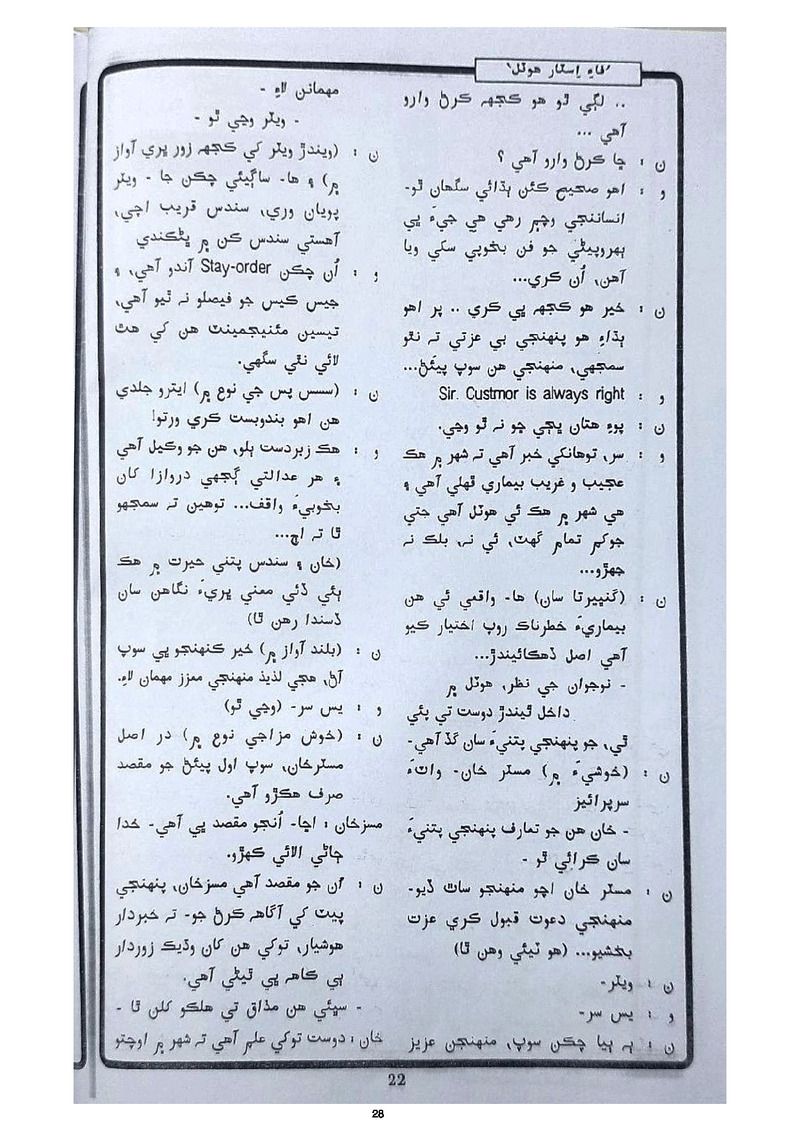 ’فاءِ اِسٽار هوٽل‘
.. لڳي ٿو هو ڪجهہ ڪرڻ وارو
آهي ...
ن : ڇا ڪرڻ وارو آهي ؟
و : اهو صحيح ڪئن ٻڌائي سگهان ٿو۔
انساننجي وچ۾ رهي هي جيءَ ڀي
ٻهروپيڻي جو فن بخوبي سکي ويا
آهن، اُن ڪري...
ن : خير هو ڪجهہ ڀي ڪري .. پر اهو
ٻڌاءِ هو پنهنجي بي عزتي تہ نٿو
سمجهي، منهنجي هن سوپ پيئڻ...
و : Sir. Custmor is always right
ن : پوءِ هتان ڀڄي ڇو نہ ٿو وڃي.
و : سر، توهانکي خبر آهي تہ شهر ۾ هڪ
عجيب و غريب بيماري ڦهلي آهي ۽
هي شهر ۾ هڪ ئي هوٽل آهي جتي
جوکم تمام گهٽ، ئي نہ، بلڪ نہ
جهڙو...
ن : (گنڀيرتا سان) ها۔ واقعي ئي هن
بيماريءَ خطرناڪ روپ اختيار ڪيو
آهي اصل ڏهڪائيندڙ...
- نوجوان جي نظر، هوٽل ۾
داخل ٿيندڙ دوست تي پئي
ٿي، جو پنهنجي پتنيءَ سان گڏ آهي۔
ن : (خوشيءَ ۾) مسٽر خان۔ واٽءَ
سرپرائيز
- خان هن جو تعارف پنهنجي پتنيءَ
سان ڪرائي ٿو -
ن : مسٽر خان اچو منهنجو ساٿ ڏيو۔
منهنجي دعوت قبول ڪري عزت
بخشيو... (هو ٽيئي وهن ٿا)
ن : ويٽر۔
و : يس سر۔
ن : ٻہ ٻيا چڪن سوپ، منهنجن عزيز
مهمانن لاءِ -
- ويٽر وڃي ٿو -
ن : (ويندڙ ويٽر کي ڪجهہ زور ڀري آواز
۾) ۽ ها۔ ساڳيئي چڪن جا - ويٽر
پويان وري، سندس قريب اچي،
آهستي سندس ڪن ۾ ڀڻڪندي
و : اُن چڪن Stay-order آندو آهي، ۽
جيس ڪيس جو فيصلو نہ ٿيو آهي،
تيسين مئنيجمينٽ هن کي هٿ
لائي نٿي سگهي.
ن : (سسس پس جي نوع ۾) ايترو جلدي
هن اهو بندوبست ڪري ورتو!
و : هڪ زبردست ٻلو، هن جو وڪيل آهي
۽ هر عدالتي ڳجهي دروازا کان
بخوبيءَ واقف... توهين تہ سمجهو
ٿا تہ اڄ...
(خان ۽ سندس پتني حيرت ۾ هڪ
ٻئي ڏئي معني ڀريءَ نگاهن سان
ڏسندا رهن ٿا)
ن : (بلند آواز ۾) خير ڪنهنجو ڀي سوپ
آڻ، هجي لذيذ منهنجي معزز مهمان لاءِ.
و : يس سر۔ (وڃي ٿو)
ن : (خوش مزاجي نوع ۾) در اصل
مسٽرخان، سوپ اول پيئڻ جو مقصد
صرف هڪڙو آهي.
مسزخان : اڇا۔ اُنجو مقصد ڀي آهي۔ خدا
ڄاڻي الائي ڪهڙو.
ن : اُن جو مقصد آهي مسزخان، پنهنجي
پيٽ کي آگاهہ ڪرڻ جو۔ تہ خبردار
هوشيار، توکي هن کان وڌيڪ زوردار
ٻي ڪاهہ ڀي ٿيڻي آهي.
- سڀئي هن مذاق تي هلڪو کلن ٿا -
خان : دوست توکي علم آهي تہ شهر ۾ اوچتو
22
28